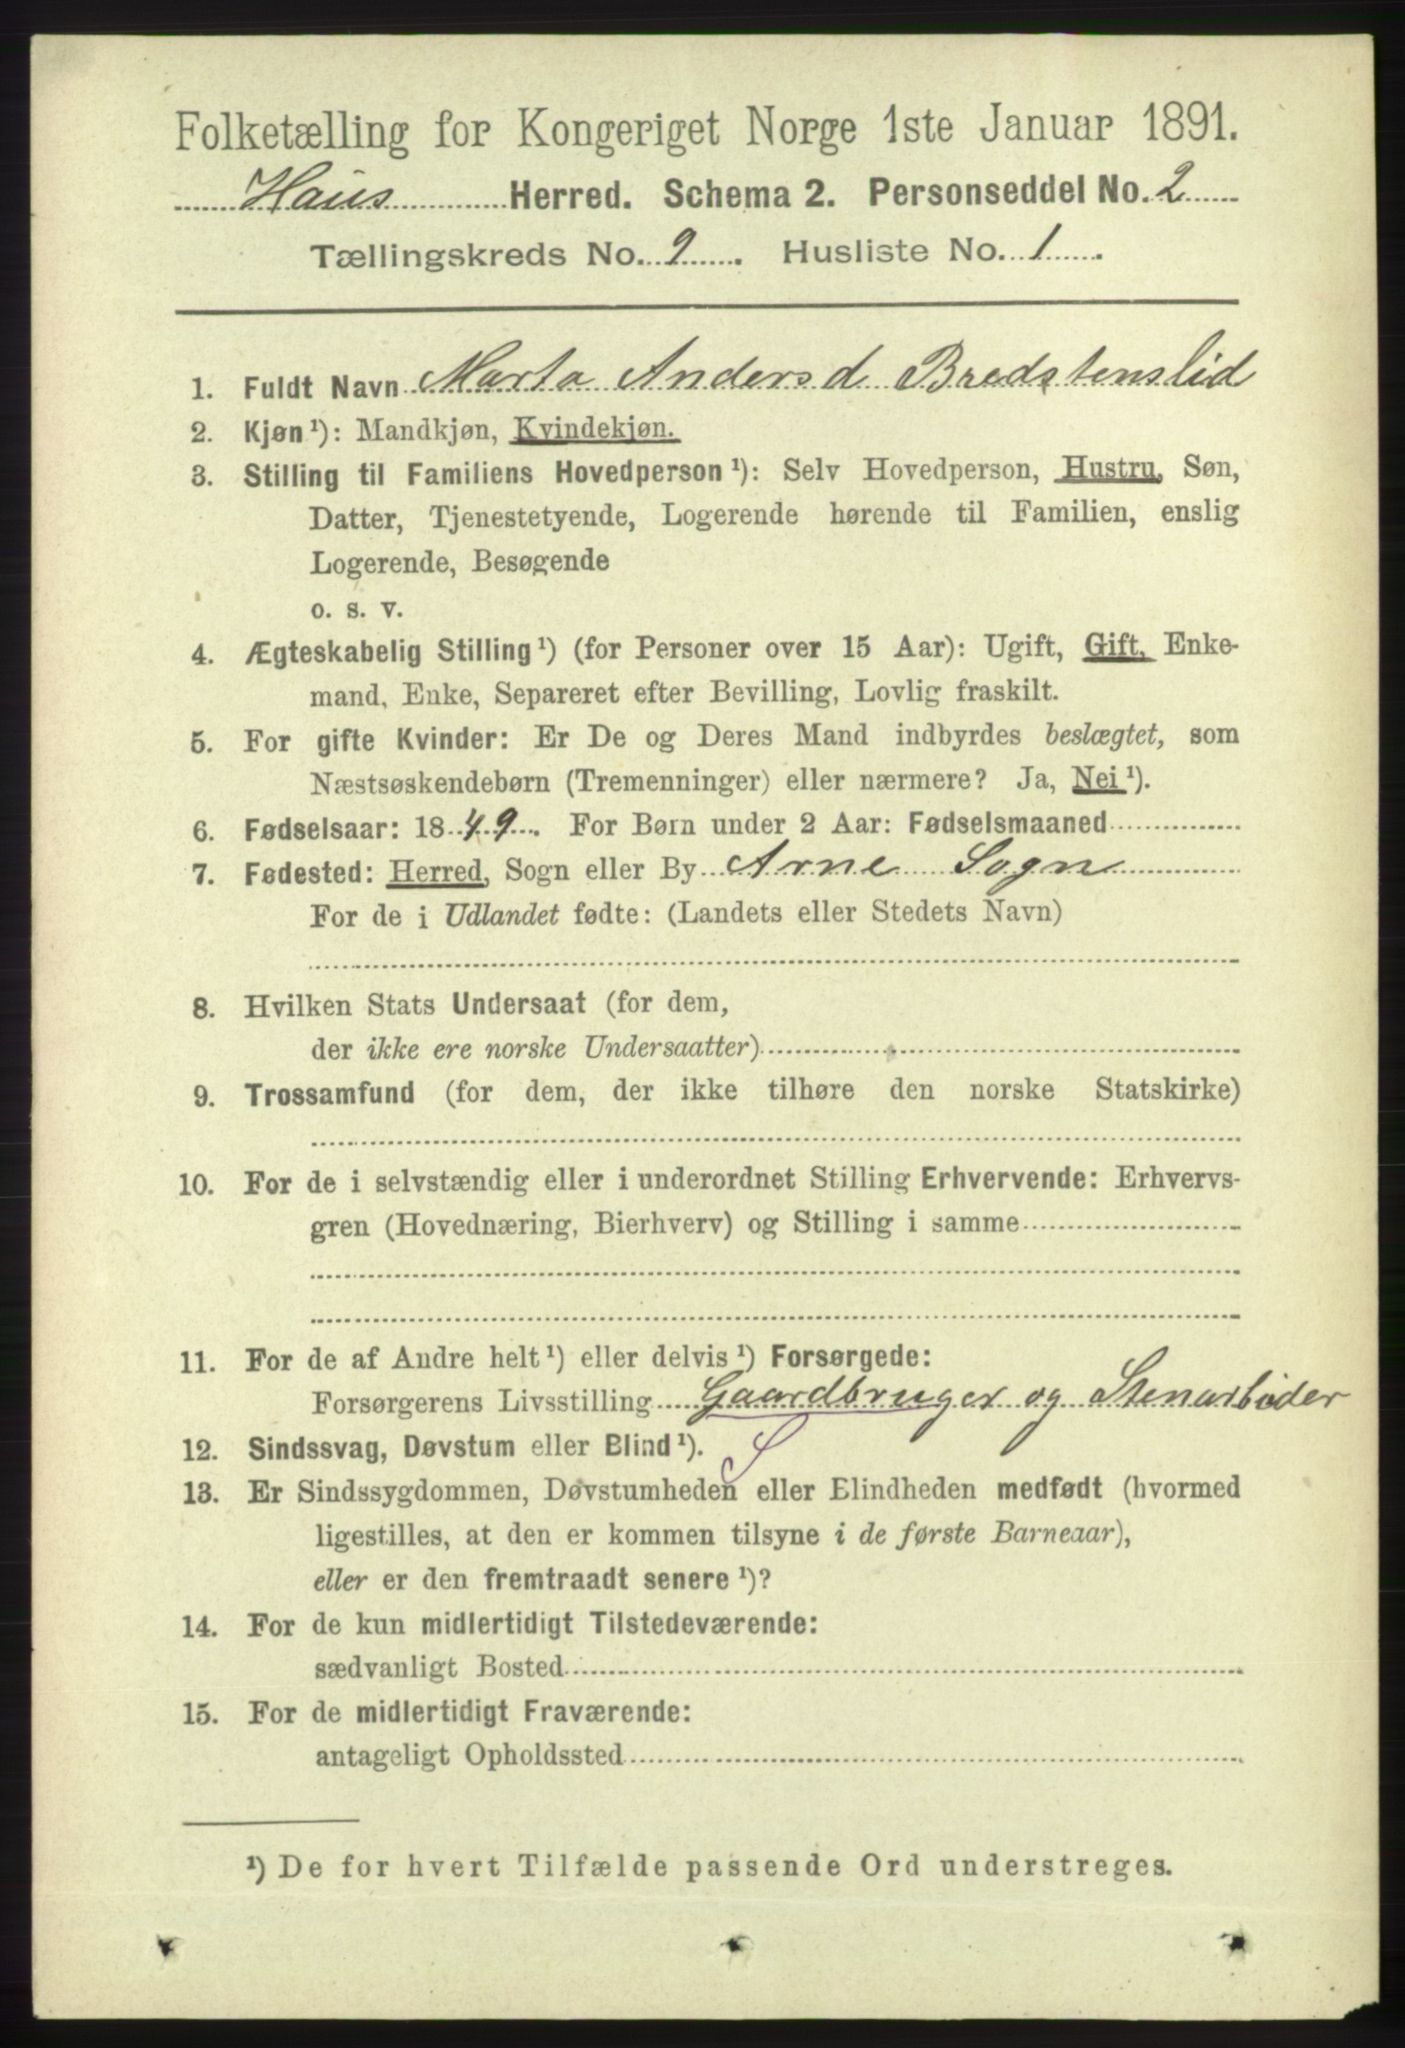 Folketælling for Kongeriget Norge 1ste Januar 1891.
Haus Herred. Schema 2. Personseddel No. 2
Tællingskreds No. 9. Husliste No. 1.
1. Fuldt Navn Marta Andersd Bredstenslid
2. Kjøn¹): Mandkjøn, Kvindekjøn.
3. Stilling til Familiens Hovedperson¹): Selv Hovedperson, Hustru, Søn,
Datter, Tjenestetyende, Logerende hørende til Familien, enslig
Logerende, Besøgende
o. s. v.
4. Ægteskabelig Stilling¹) (for Personer over 15 Aar): Ugift, Gift, Enke-
mand, Enke, Separeret efter Bevilling, Lovlig fraskilt.
5. For gifte Kvinder: Er De og Deres Mand indbyrdes beslægtet, som
Næstsøskendebørn (Tremenninger) eller nærmere? Ja, Nei¹).
6. Fødselsaar: 1849. For Børn under 2 Aar: Fødselsmaaned
7. Fødested: Herred, Sogn eller By Arne Sogn
For de i Udlandet fødte: (Landets eller Stedets Navn)
8. Hvilken Stats Undersaat (for dem,
der ikke ere norske Undersaatter)
9. Trossamfund (for dem, der ikke tilhøre den norske Statskirke)
10. For de i selvstændig eller i underordnet Stilling Erhvervende: Erhvervs-
gren (Hovednæring, Bierhverv) og Stilling i samme
11. For de af Andre helt¹) eller delvis¹) Forsørgede:
Forsørgerens Livsstilling Gaardbruger og Stenarbeider
12. Sindssvag, Døvstum eller Blind¹). S
13. Er Sindssygdommen, Døvstumheden eller Blindheden medfødt (hvormed
ligestilles, at den er kommen tilsyne i de første Barneaar),
eller er den fremtraadt senere¹)?
14. For de kun midlertidigt Tilstedeværende:
sædvanligt Bosted
15. For de midlertidigt Fraværende:
antageligt Opholdssted
¹) De for hvert Tilfælde passende Ord understreges.